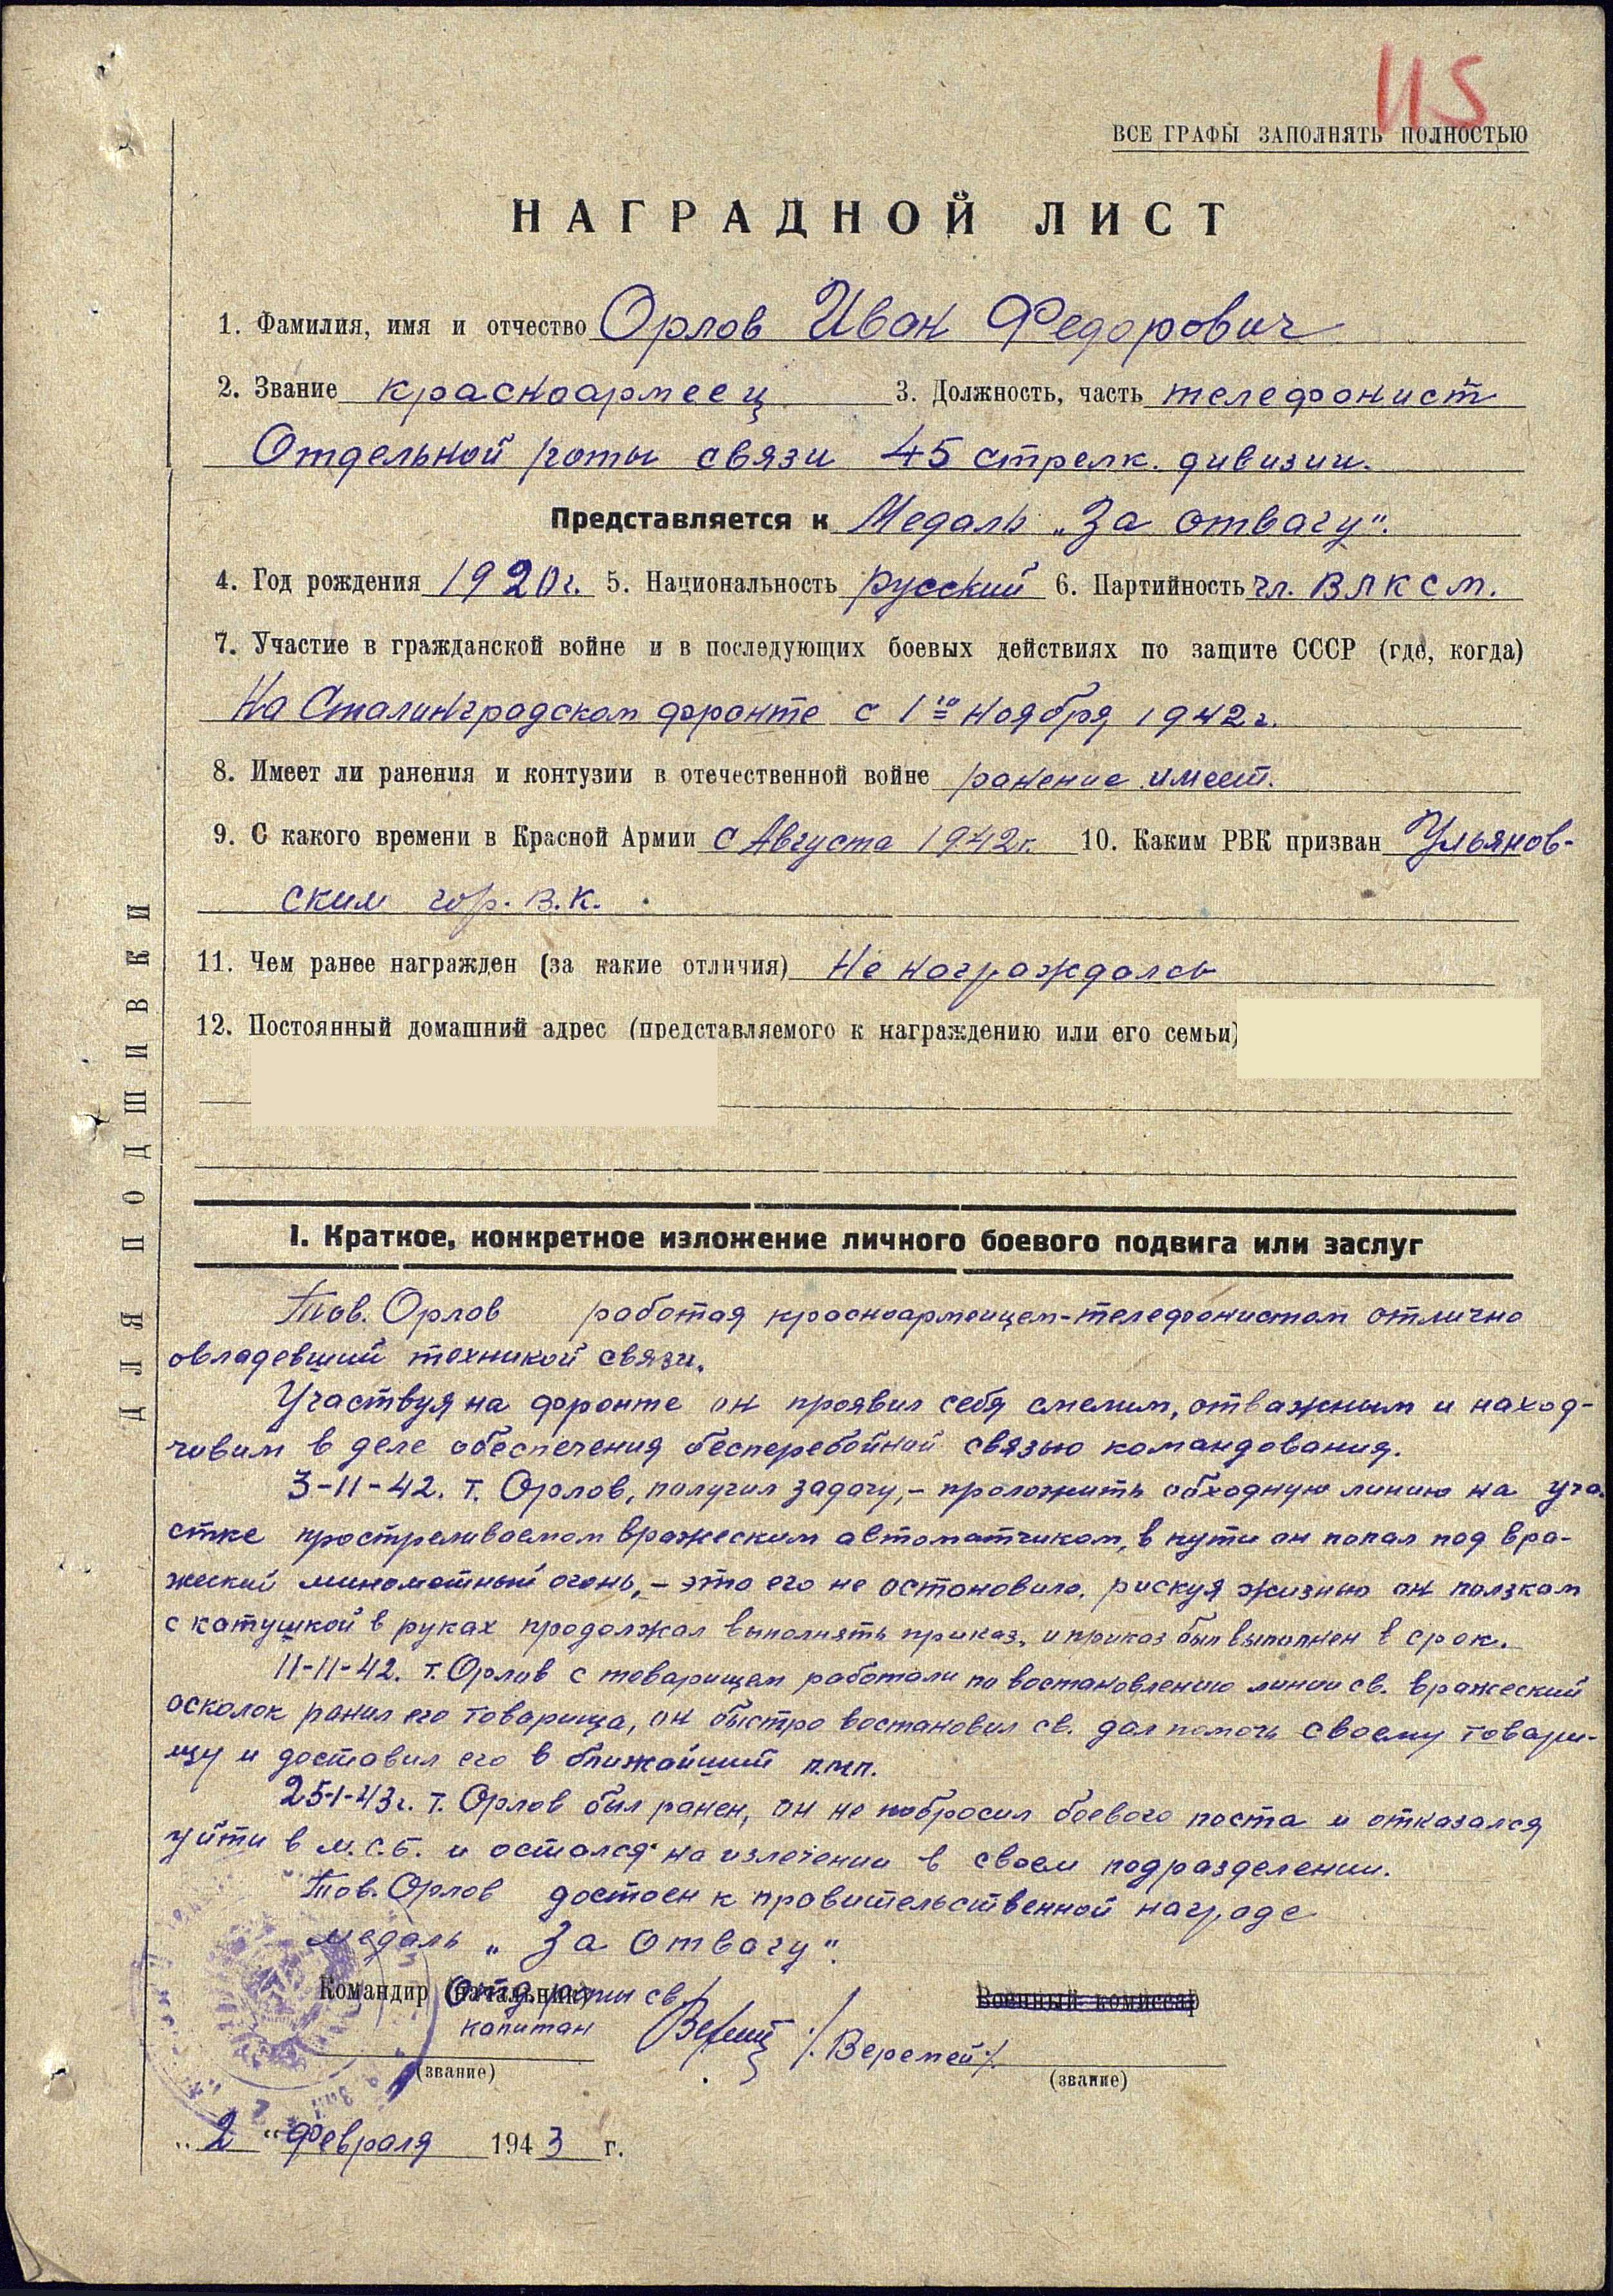 115
ВСЕ ГРАФЫ ЗАПОЛНЯТЬ ПОЛНОСТЬЮ
НАГРАДНОЙ ЛИСТ
1. Фамилия, имя и отчество Орлов Иван Федорович
2. Звание красноармеец 3. Должность, часть телефонист
Отдельной роты связи 45 стрелк. дивизии.
Представляется к Медаль „За отвагу".
4. Год рождения 1920г. 5. Национальность русский 6. Партийность чл. ВЛКСМ.
7. Участие в гражданской войне и в последующих боевых действиях по защите СССР (где, когда)
На Сталинградском фронте с 1го ноября 1942г.
8. Имеет ли ранения и контузии в отечественной войне ранение имеет.
9. С какого времени в Красной Армии с Августа 1942г. 10. Каким РВК призван Ульянов-
ским гор. В.К.
11. Чем ранее награжден (за какие отличия) Не награждался
12. Постоянный домашний адрес (представляемого к награждению или его семьи)
ДЛЯ ПОДШИВКИ
I. Краткое, конкретное изложение личного боевого подвига или заслуг
Тов. Орлов работая красноармейцем-телефонистом отлично
овладевший техникой связи.
Участвуя на фронте он проявил себя смелым, отважным и наход-
чивым в деле обеспечения бесперебойной связью командования.
3-11-42. т. Орлов, получил задачу,- проложить обходную линию на уча-
стке простреливаемом вражеским автоматчиком, в пути он попал под вра-
жеский минометный огонь,- это его не остановило, рискуя жизнью он ползком
с катушкой в руках продолжал выполнять приказ, и приказ был выполнен в срок.
11-11-42. т. Орлов с товарищем работали по востановлению линии св. вражеский
осколок ранил его товарища, он быстро востановил св. дал помочь своему товари-
щу и доставил его в ближайший п.м.п.
25-1-43г. т. Орлов был ранен, он не побросил боевого поста и отказался
уйти в м.с.б. и остался на излечении в своем подразделении.
Тов. Орлов достоен к правительственной награде
медаль „За Отвагу".
Командир (начальник) Отд. роты св.
Военный комиссар
капитан /Веремей/
(звание) (звание)
„2" Февраля 1943 г.